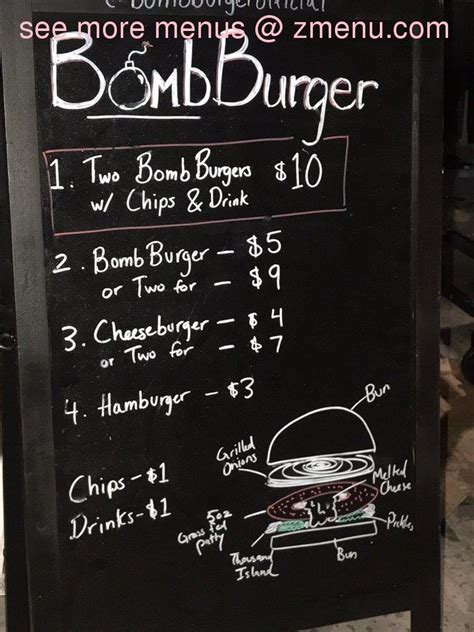 @bombburgerofficial
see more menus @ zmenu.com
BomBBurger
1. Two BombBurgers $10
w/ Chips & Drink
2. BombBurger - $5
or Two for - $9
3. Cheeseburger - $4
or Two for - $7
4. Hamburger - $3
Chips - $1
Drinks - $1
Bun
Grilled
Onions
Melted
Cheese
5oz
Grass Fed
patty
Pickles
Thousand
Island
Bun